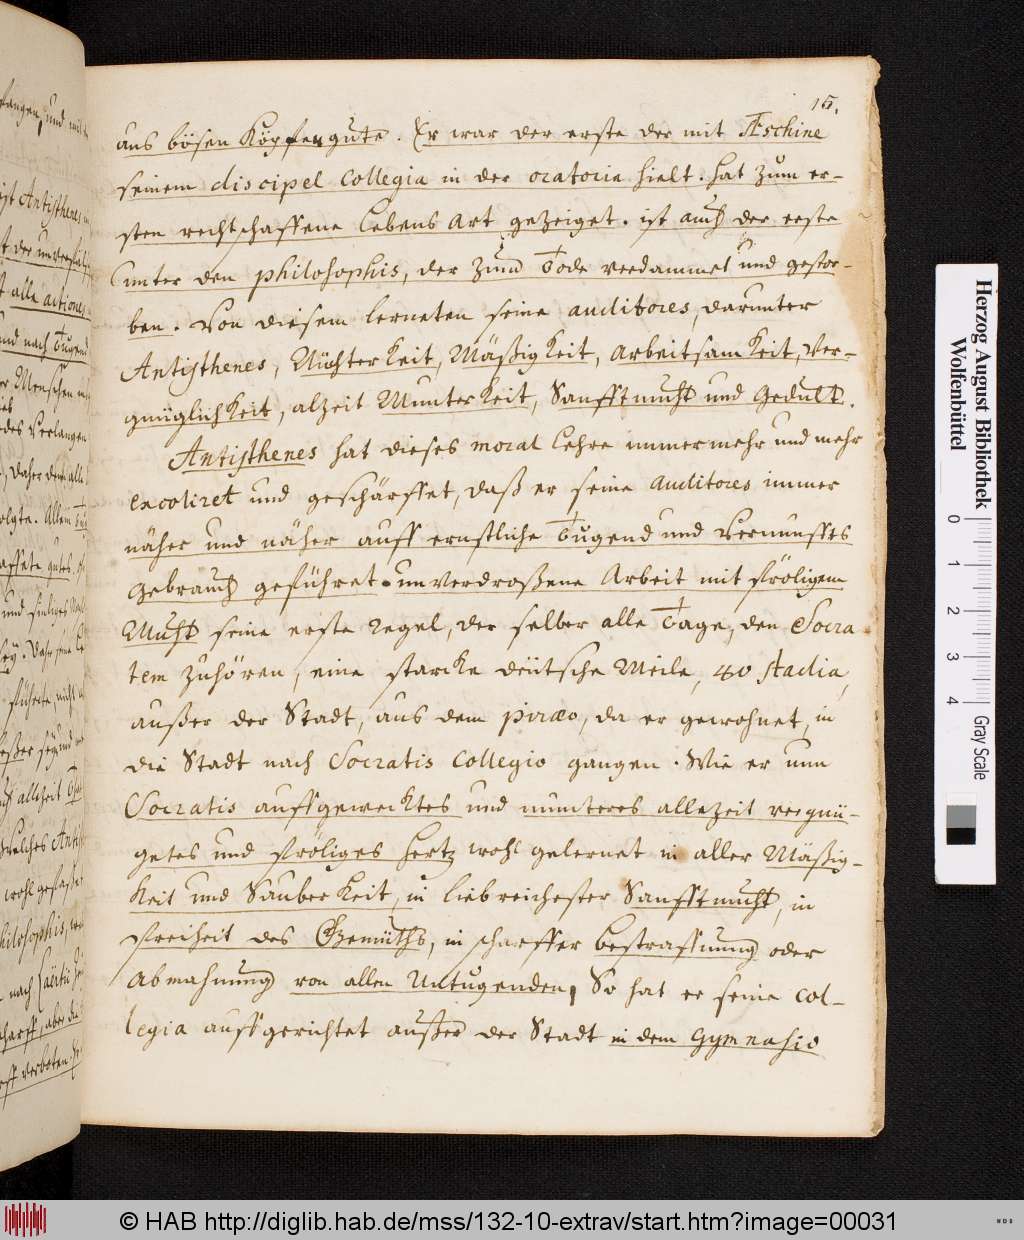 15.
aus bösen Köpfen gute. Er war der erste der mit Æschine
seinem discipel Collegia in der oratoria hielt. hat zum er-
sten rechtschaffene Lebens Art gezeiget. ist auch der erste
unter den philosophis, der zum Tode verdammet und gestor-
ben. Von diesem lerneten seine auditores, darunter
Antisthenes, Nüchterkeit, Mäßigkeit, Arbeitsamkeit, Ver-
gnüglichkeit, alzeit Munterkeit, Sanfftmuht und Gedult.
Antisthenes hat dieses moral Lehre immermehr und mehr
excoliret und geschärffet, daß er seine auditores immer
näher und näher auff ernstliche Tugend und Vernunfftes
gebrauch geführet. unverdroßene Arbeit mit fröligem
Muht seine erste regel, der selber alle Tage, den Socra
tem zuhören, eine starcke deütsche Meile, 40 stadia,
außer der Stadt, aus dem piræo, da er gewohnet, in
die Stadt nach Socratis Collegio gangen. Wie er nun
Socratis auffgewecktes und munteres allezeit vergnü-
getes und fröliges Hertz wohl gelernet in aller Mäßig-
keit und Sauberkeit, in liebreichester Sanfftmuht, in
Freiheit des Gemüths, in scharffer bestraffung oder
Abmahnung von allen Untugenden, So hat er seine Col-
legia auffgerichtet außer der Stadt in dem Gymnasio
Antisthenes
alle actiones
und nach Tugend
Menschen
des Verlangen
Herzog August Bibliothek
Wolfenbüttel
0 1 2 3 4 Gray Scale
© HAB http://diglib.hab.de/mss/132-10-extrav/start.htm?image=00031